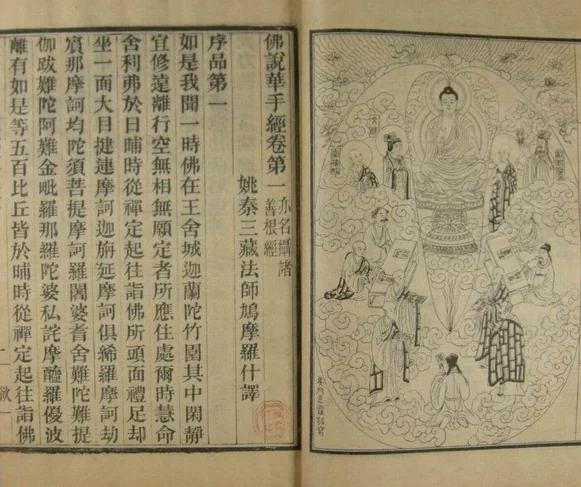 佛說華手經卷第一
亦名攝諸
善根經
姚秦三藏法師鳩摩羅什譯
序品第一
如是我聞一時佛在王舍城迦蘭陀竹園其中閑靜
宜修遠離行空無相無願定者所應住處爾時慧命
舍利弗於日晡時從禪定起往詣佛所頭面禮足却
坐一面大目揵連摩訶迦旃延摩訶俱絺羅摩訶劫
賓那摩訶均陀須菩提摩訶羅闍婆耆舍難陀難提
伽跋難陀阿難金毗羅那羅陀婆私詫摩醯羅優波
離有如是等五百比丘皆於晡時從禪定起往詣佛